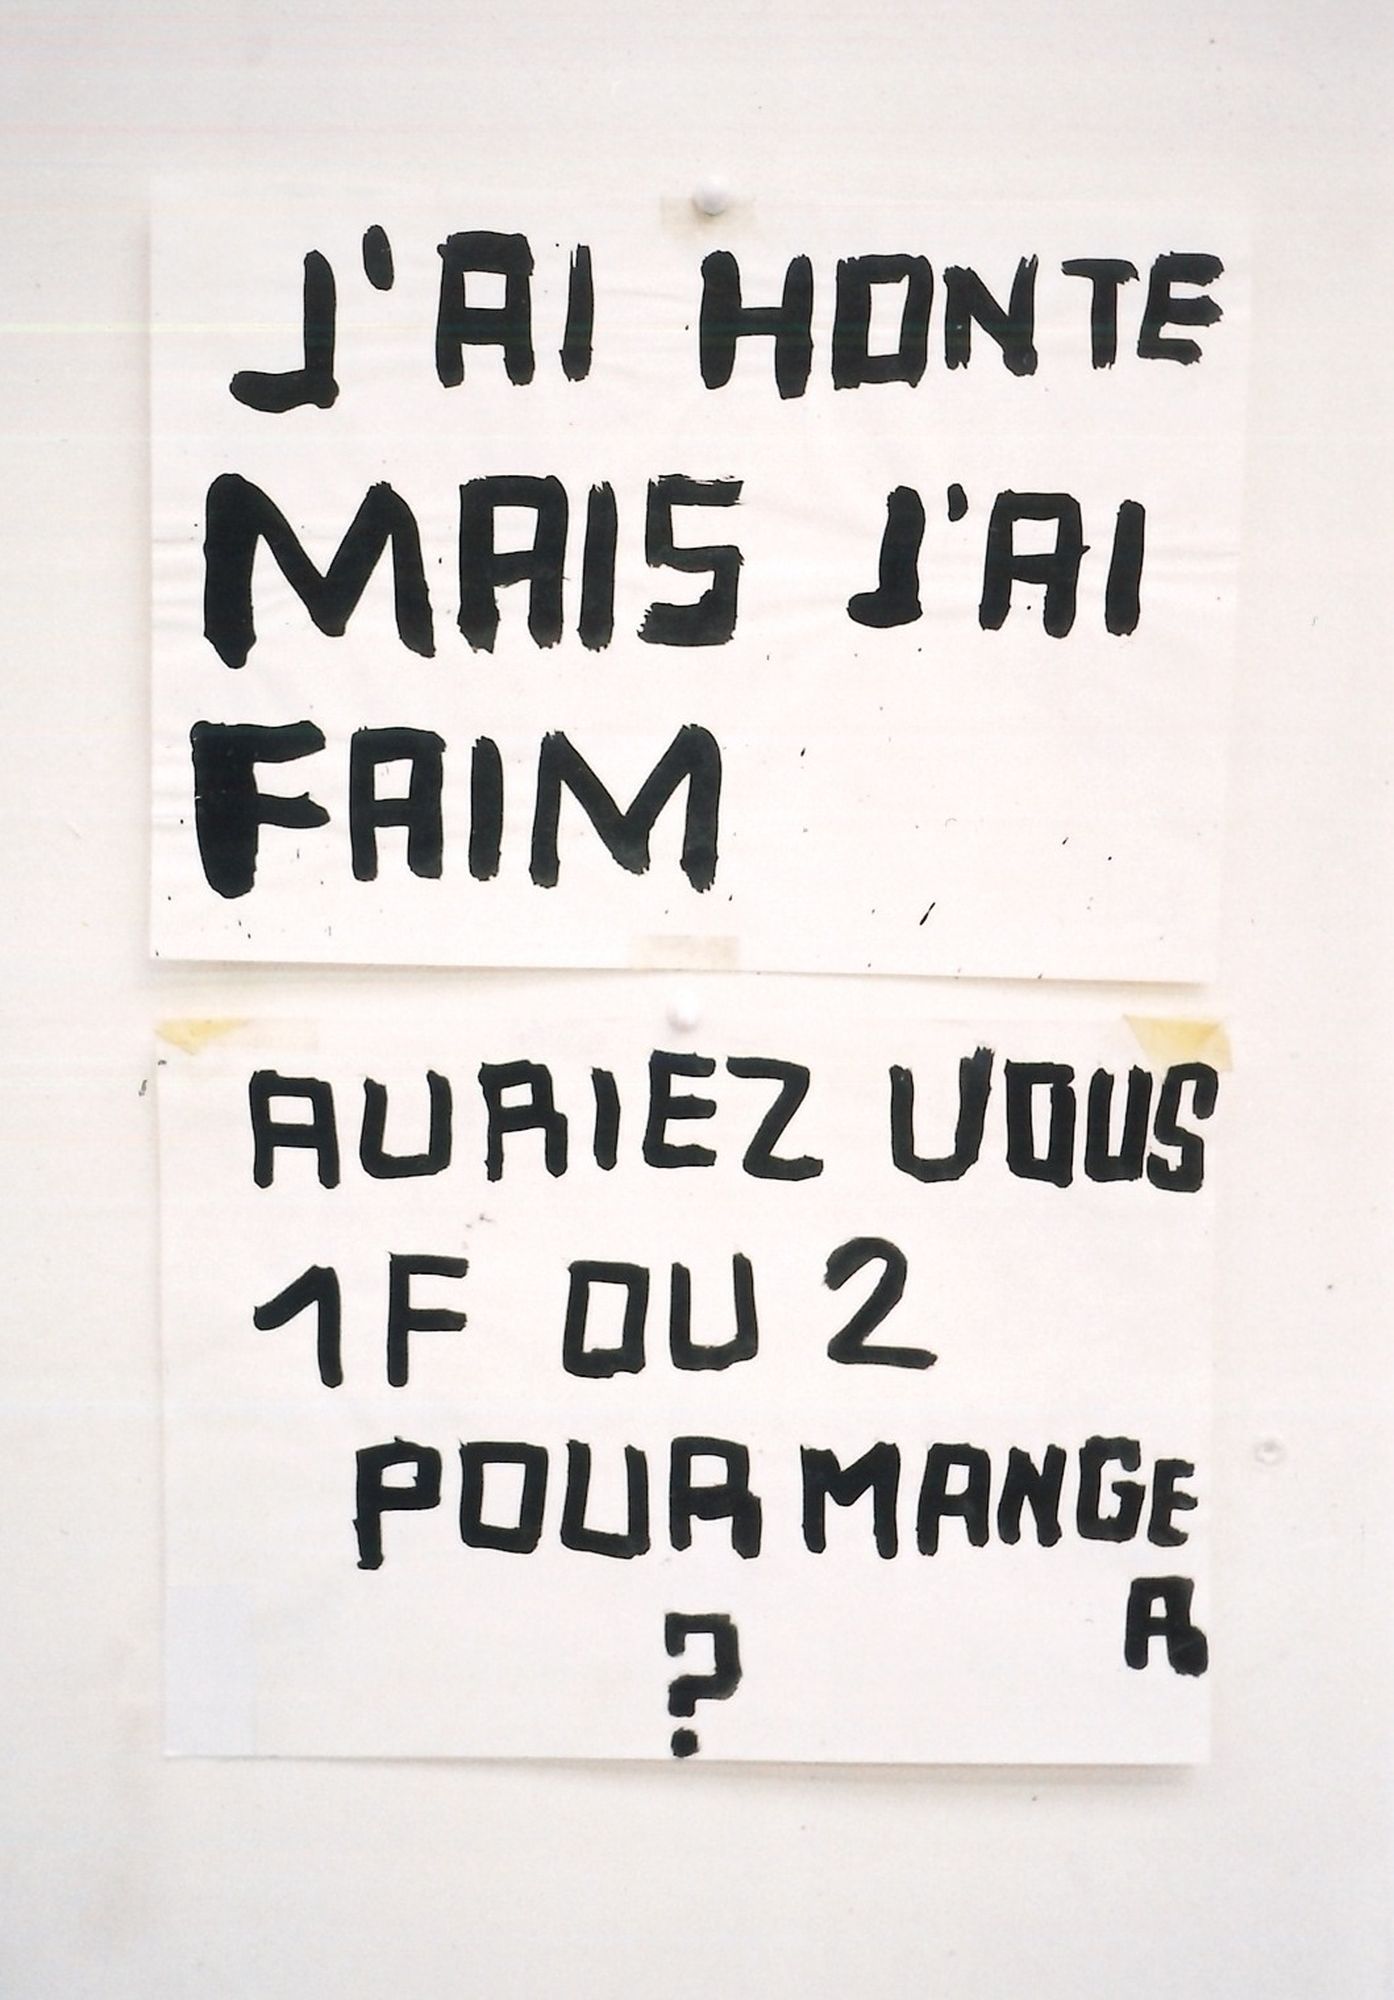 J'AI HONTE
MAIS J'AI
FAIM
AURIEZ VOUS
1F OU 2
POUR MANGE
R
?